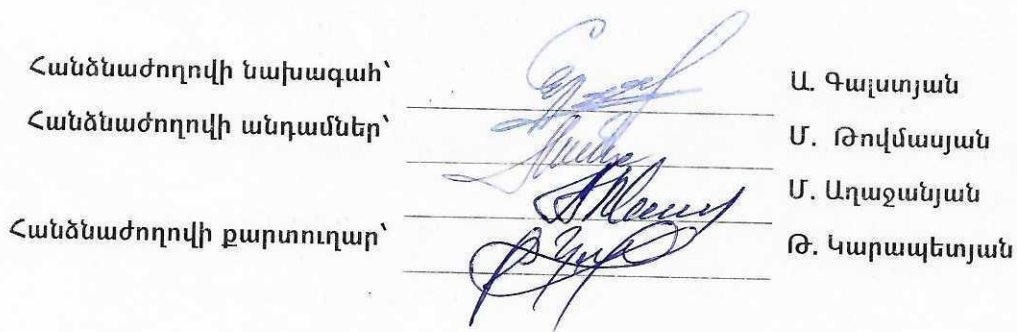 Հանձնաժողովի նախագահ՝ Ա. Գալստյան
Հանձնաժողովի անդամներ՝ Մ. Թովմասյան
Մ. Աղաջանյան
Հանձնաժողովի քարտուղար՝ Թ. Կարապետյան